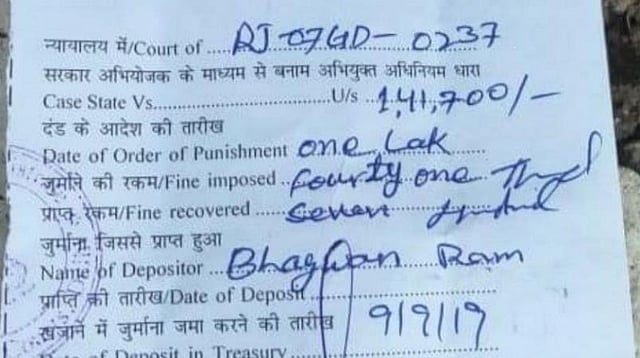 न्यायालय में/Court of ..... RJ-07GD-0237
सरकार अभियोजक के माध्यम से बनाम अभियुक्त अधिनियम धारा
Case State Vs.............................U/s ..1,41,700/-
दंड के आदेश की तारीख
Date of Order of Punishment one Lak
जुर्माने की रकम/Fine imposed . fourty one
प्राप्त रकम/Fine recovered ..... seven
जुर्माना जिससे प्राप्त हुआ
Name of Depositor ... Bhagwan Ram
प्राप्ति की तारीख/Date of Deposit
खजाने में जुर्माना जमा करने की तारीख 9/9/19
Deposit in Treasury